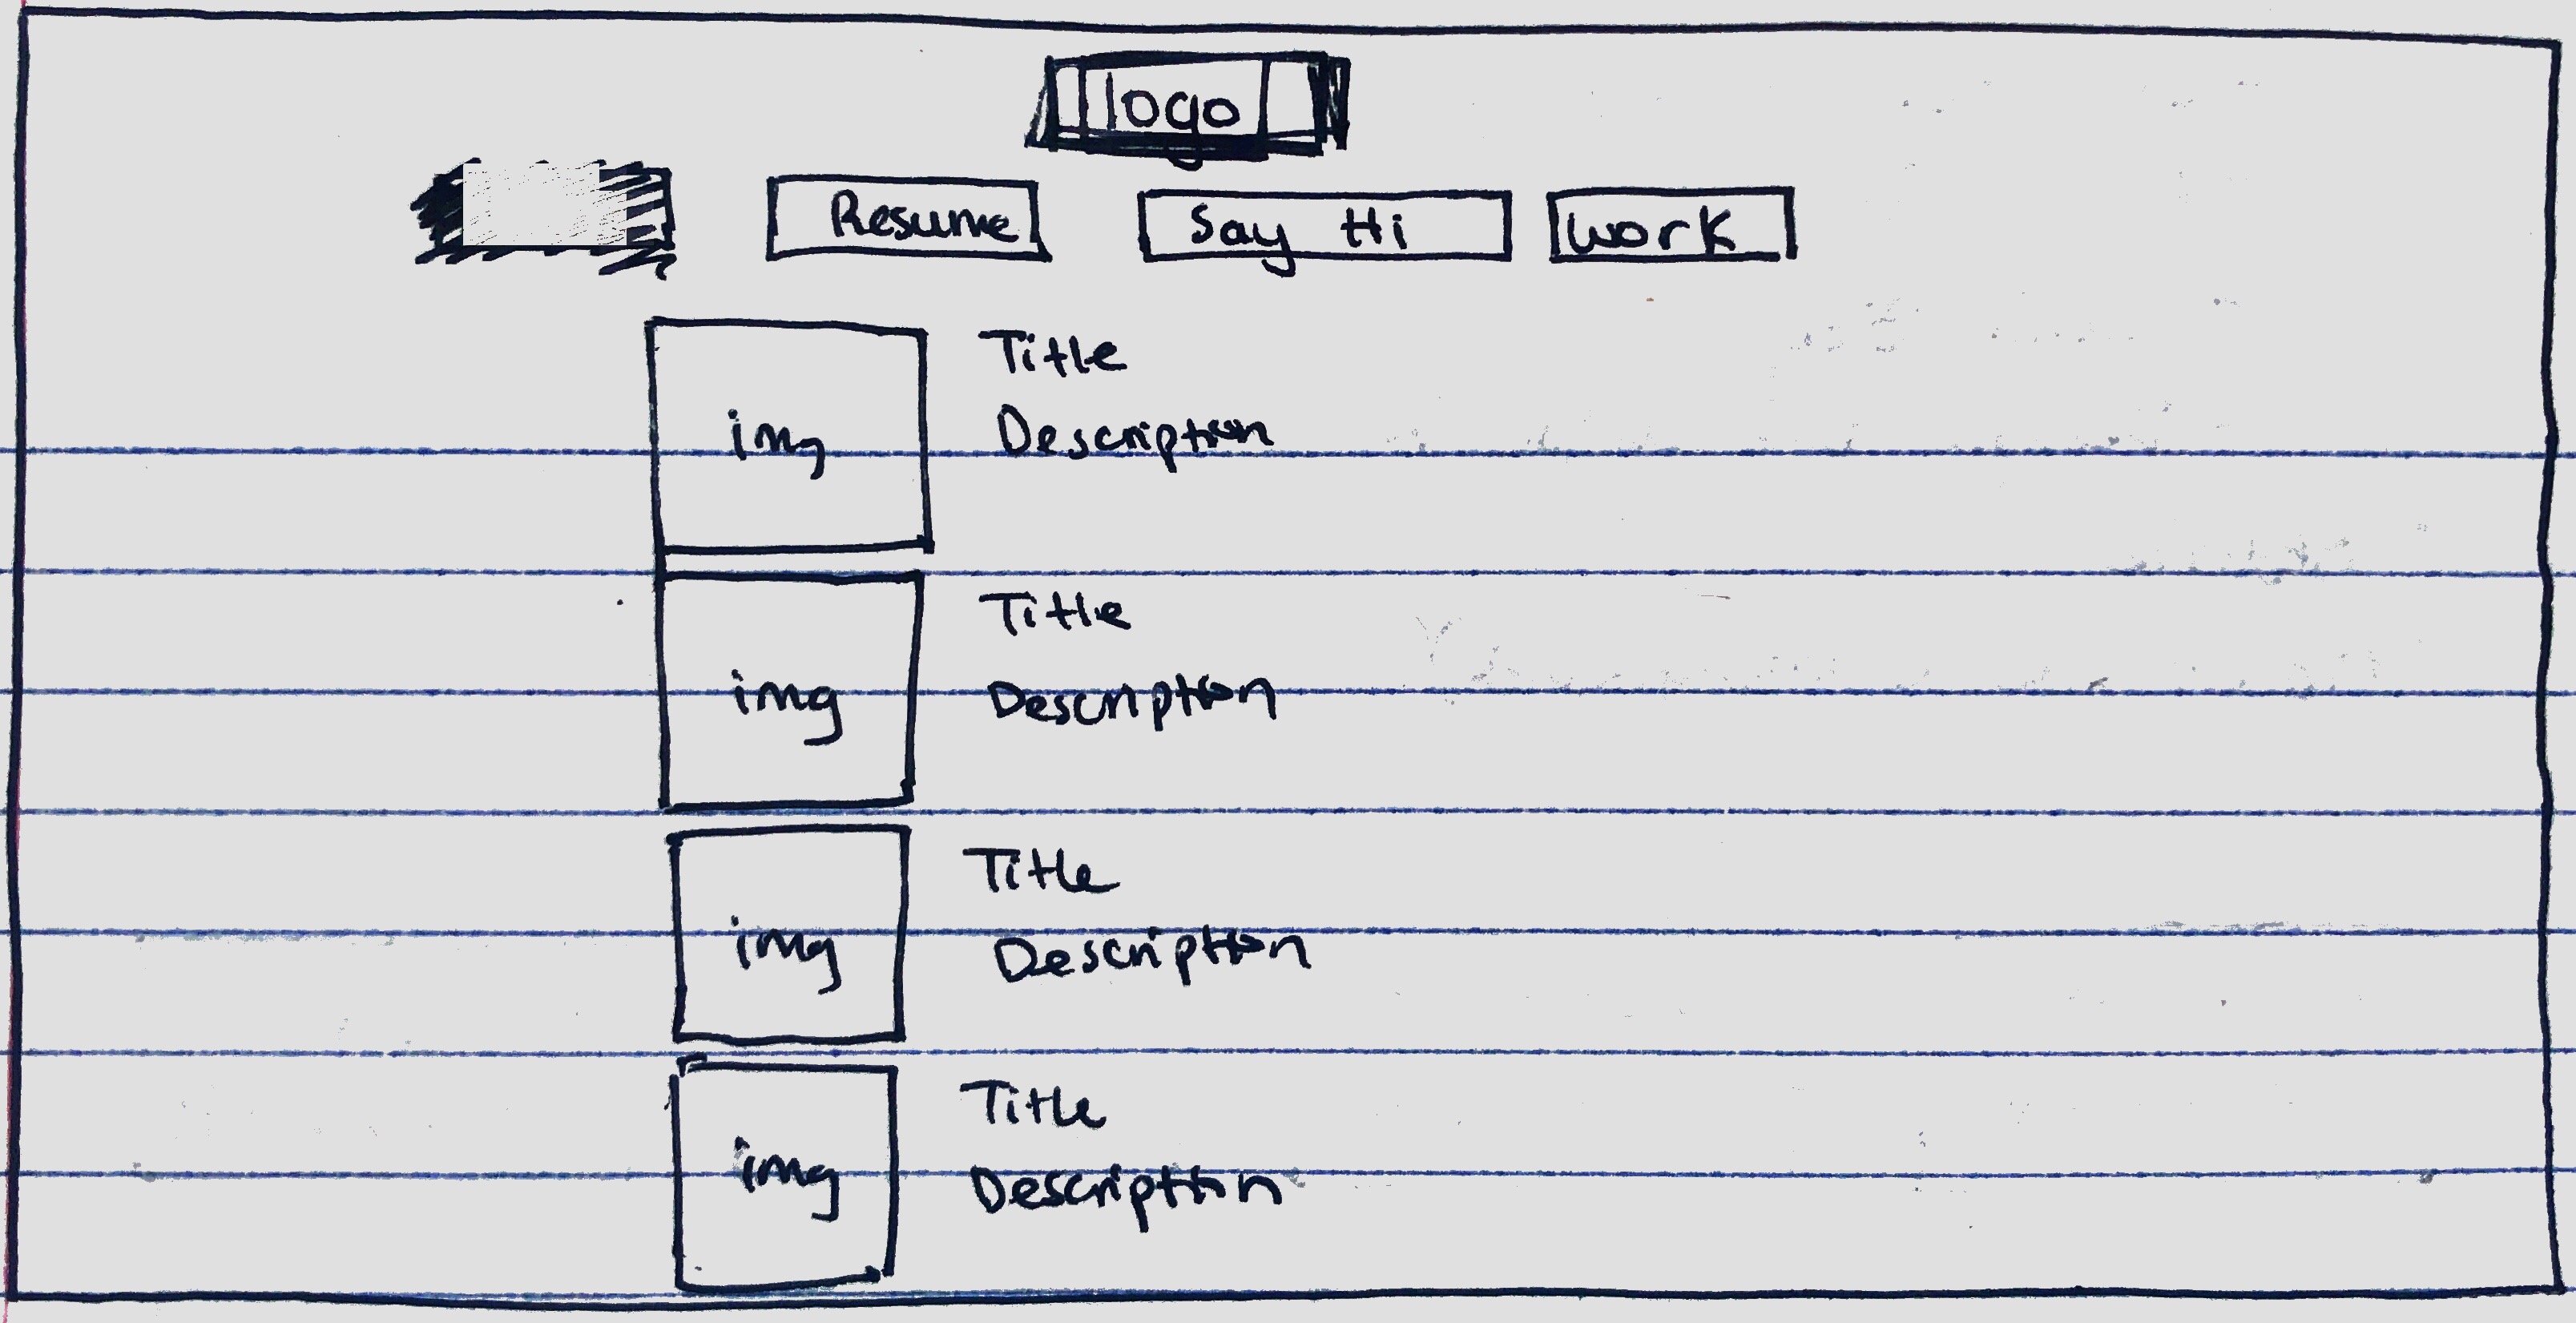 logo
Resume
Say Hi
Work
Title
Description
img
Title
Description
img
Title
Description
img
Title
Description
img